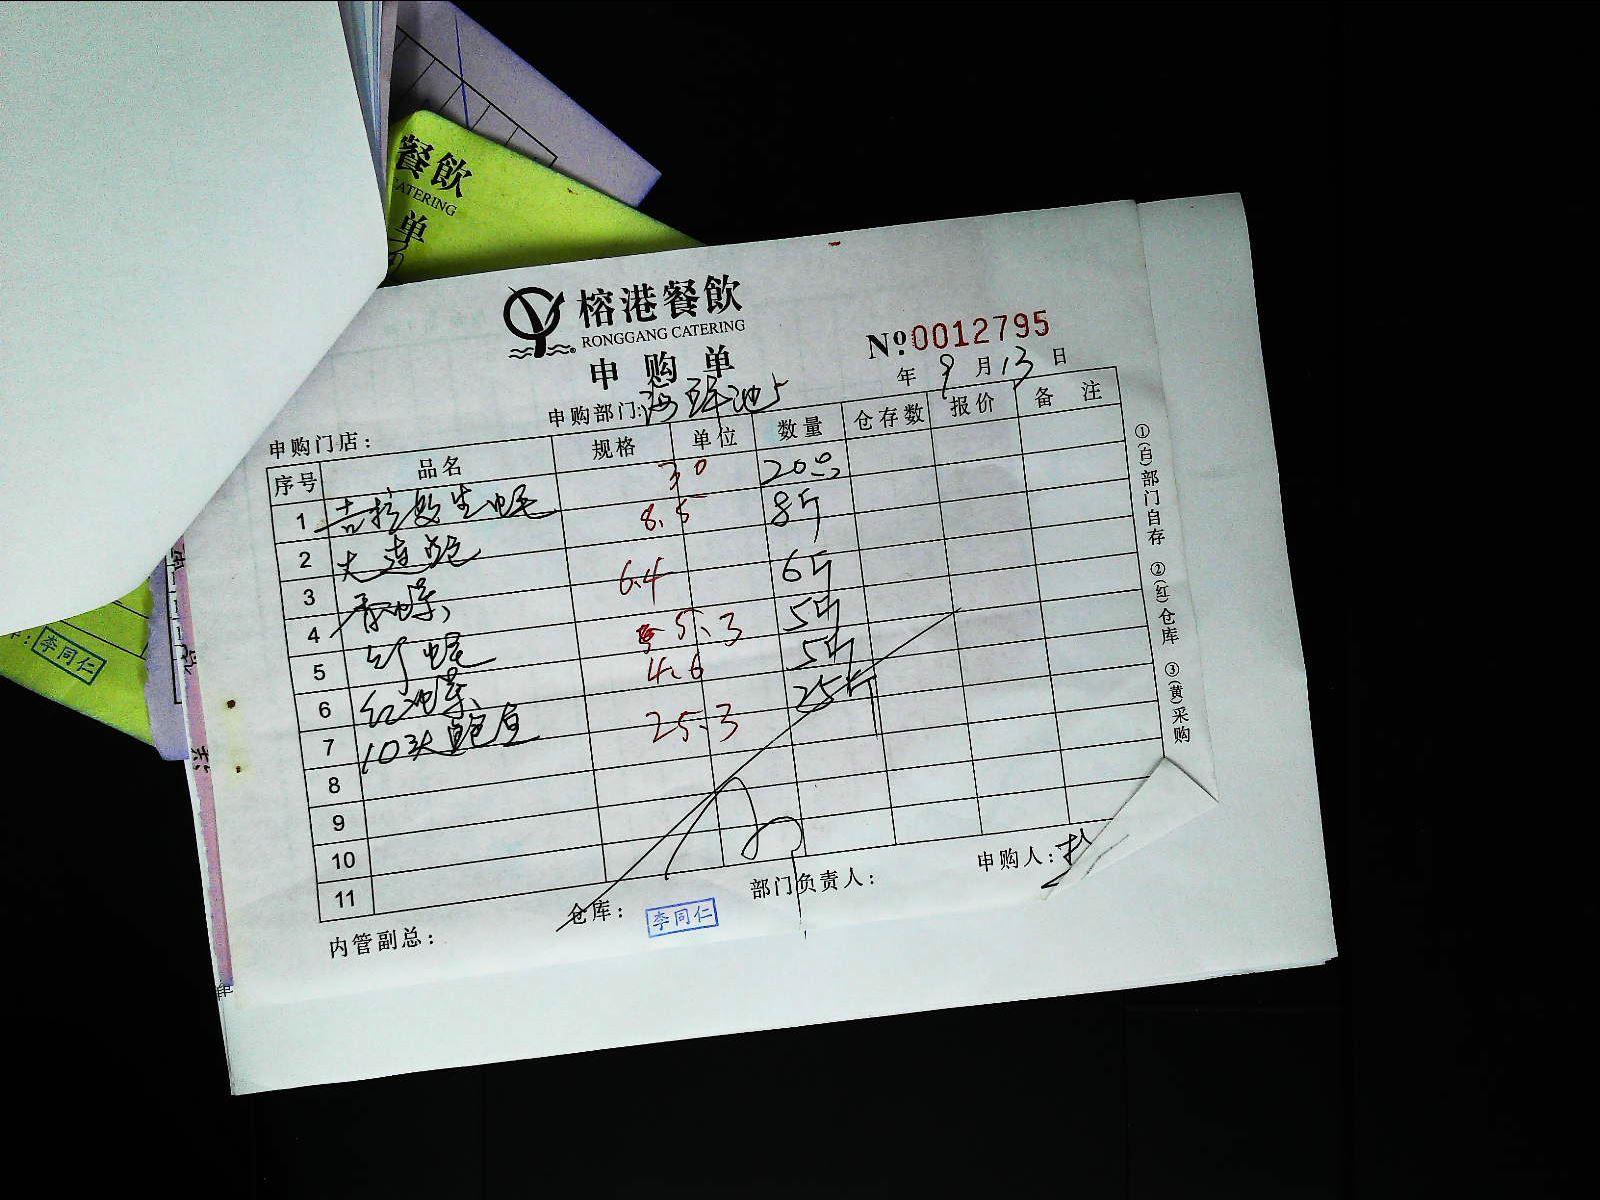 餐飲
CATERING
单
李同仁
榕港餐飲
RONGGANG CATERING
申购单
№:0012795
年 9月13日
申购部门:海鲜池
申购门店：
序号 品名 规格 单位 数量 仓存数 报价 备注
1 吉拉多生蚝 30 20只
2 大连鲍 8.5 8斤
3 青口螺 6.4 6斤
4 5.3 5斤
5 4.6 5斤
6 红螺 25.3 25斤
7 10头鲍鱼
8
9
10
11
①(白)部门自存 ②(红)仓库 ③(黄)采购
内管副总： 仓库： 李同仁 部门负责人： 申购人：